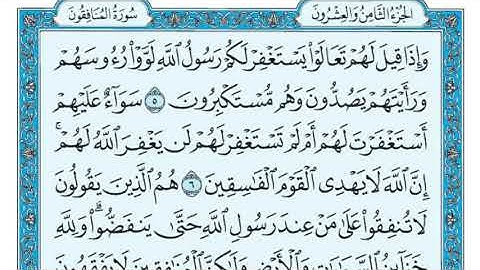 الجزء الثامن والعشرون سورة المنافقون
وَإِذَا قِيلَ لَهُمْ تَعَالَوْا۟ يَسْتَغْفِرْ لَكُمْ رَسُولُ ٱللَّهِ لَوَّوْا۟ رُءُوسَهُمْ
وَرَأَيْتَهُمْ يَصُدُّونَ وَهُم مُّسْتَكْبِرُونَ ٥ سَوَآءٌ عَلَيْهِمْ
أَسْتَغْفَرْتَ لَهُمْ أَمْ لَمْ تَسْتَغْفِرْ لَهُمْ لَن يَغْفِرَ ٱللَّهُ لَهُمْ ۚ
إِنَّ ٱللَّهَ لَا يَهْدِى ٱلْقَوْمَ ٱلْفَـٰسِقِينَ ٦ هُمُ ٱلَّذِينَ يَقُولُونَ
لَا تُنفِقُوا۟ عَلَىٰ مَنْ عِندَ رَسُولِ ٱللَّهِ حَتَّىٰ يَنفَضُّوا۟ ۗ وَلِلَّهِ
خَزَآئِنُ ٱلسَّمَـٰوَٰتِ وَٱلْأَرْضِ وَلَـٰكِنَّ ٱلْمُنَـٰفِقِينَ لَا يَفْقَهُونَ